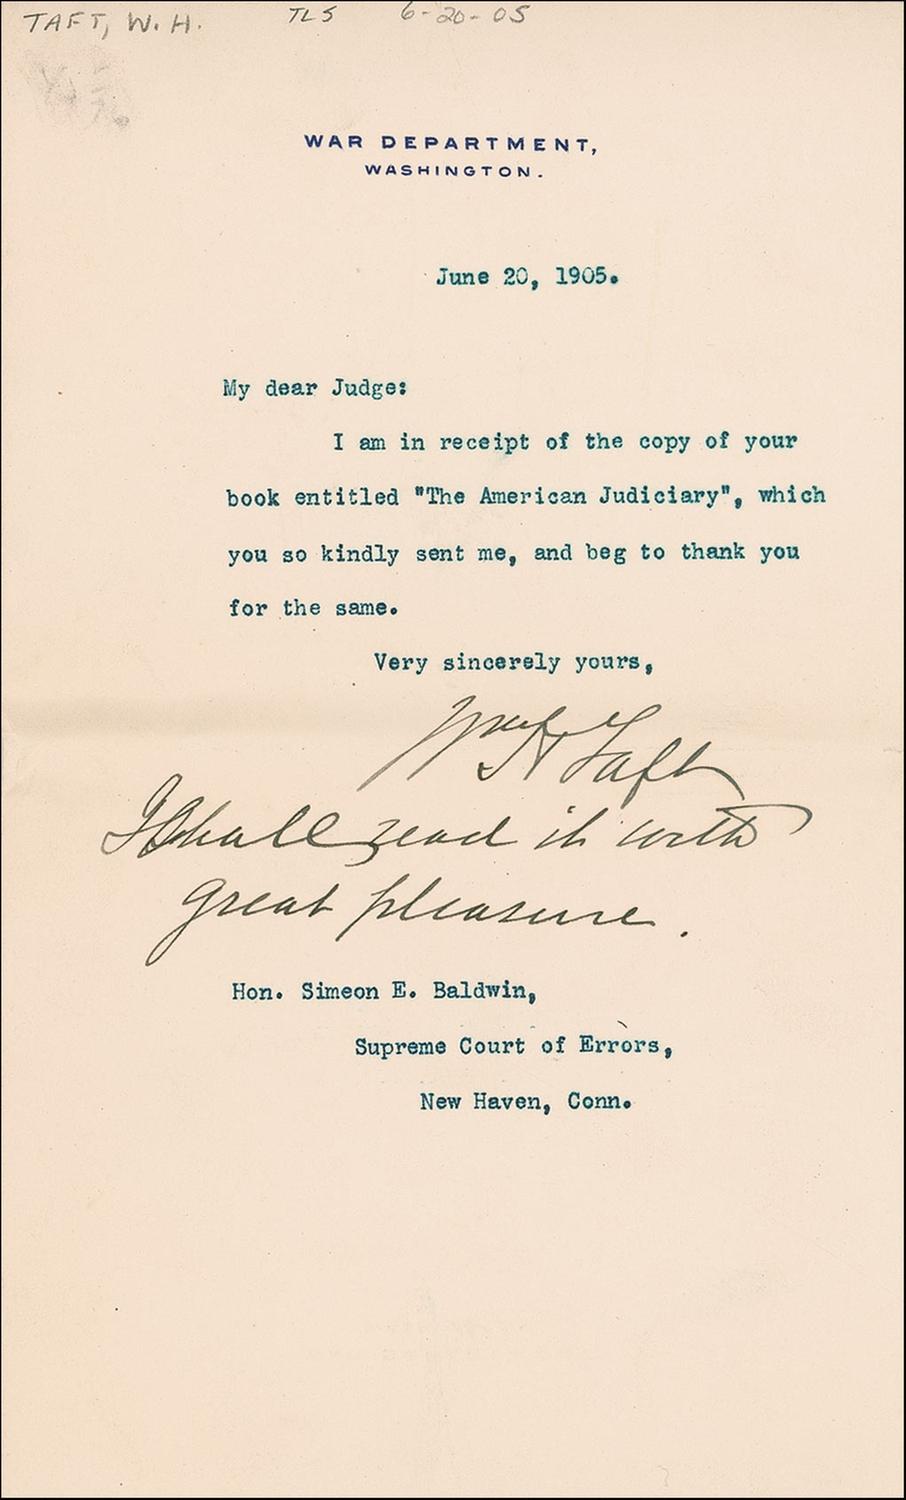 TAFT, W. H. TLS 6-20-05
WAR DEPARTMENT,
WASHINGTON.
June 20, 1905.
My dear Judge:
I am in receipt of the copy of your
book entitled "The American Judiciary", which
you so kindly sent me, and beg to thank you
for the same.
Very sincerely yours,
Wm H Taft
I shall read it with
great pleasure.
Hon. Simeon E. Baldwin,
Supreme Court of Errors,
New Haven, Conn.